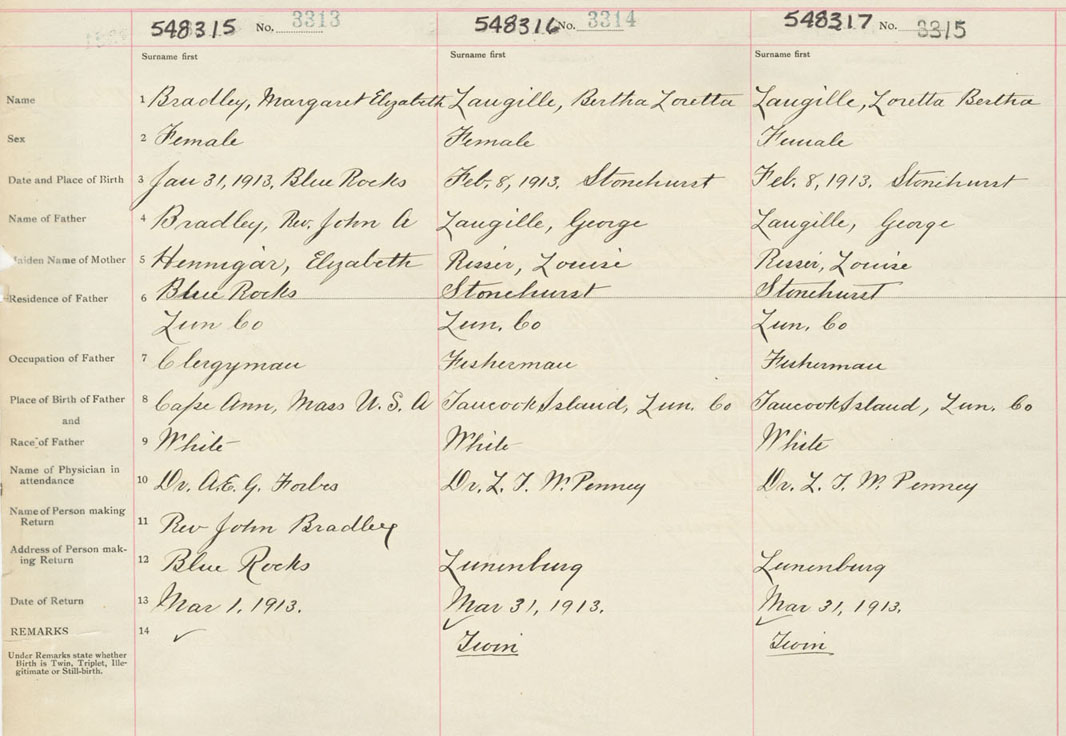 548315 No. 3313 548316 No. 3314 548317 No. 3315
Surname first Surname first Surname first
Name 1 Bradley, Margaret Elizabeth Zaugille, Bertha Loretta Zaugille, Loretta Bertha
Sex 2 Female Female Female
Date and Place of Birth 3 Jan 31, 1913, Blue Rocks Feb. 8, 1913. Stonehurst Feb. 8, 1913. Stonehurst
Name of Father 4 Bradley, Rev. John A Zaugille, George Zaugille, George
Maiden Name of Mother 5 Hennigar, Elizabeth Risser, Louise Risser, Louise
Residence of Father 6 Blue Rocks Stonehurst Stonehurst
Lun Co Lun. Co Lun. Co
Occupation of Father 7 Clergyman Fisherman Fisherman
Place of Birth of Father 8 Cape Ann, Mass U.S.A Tancook Island, Lun. Co Tancook Island, Lun. Co
and
Race of Father 9 White White White
Name of Physician in
attendance 10 Dr. A.E.G. Forbes Dr. L. T. W. Penney Dr. L. T. W. Penney
Name of Person making
Return 11 Rev John Bradley
Address of Person mak-
ing Return 12 Blue Rocks Lunenburg Lunenburg
Date of Return 13 Mar 1, 1913. Mar 31, 1913. Mar 31, 1913.
REMARKS 14 ✓ Twin Twin
Under Remarks state whether
Birth is Twin, Triplet, Ille-
gitimate or Still-birth.